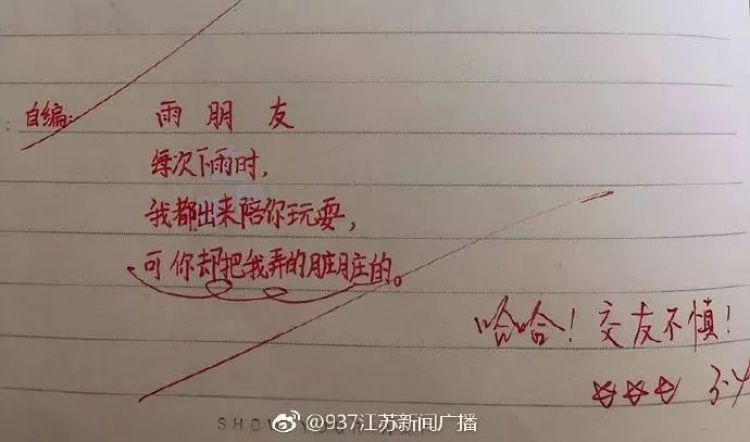 自编: 雨朋友
每次下雨时，
我都出来陪你玩耍，
可你却把我弄的脏脏的。
哈哈！交友不慎！
3.4
@937江苏新闻广播